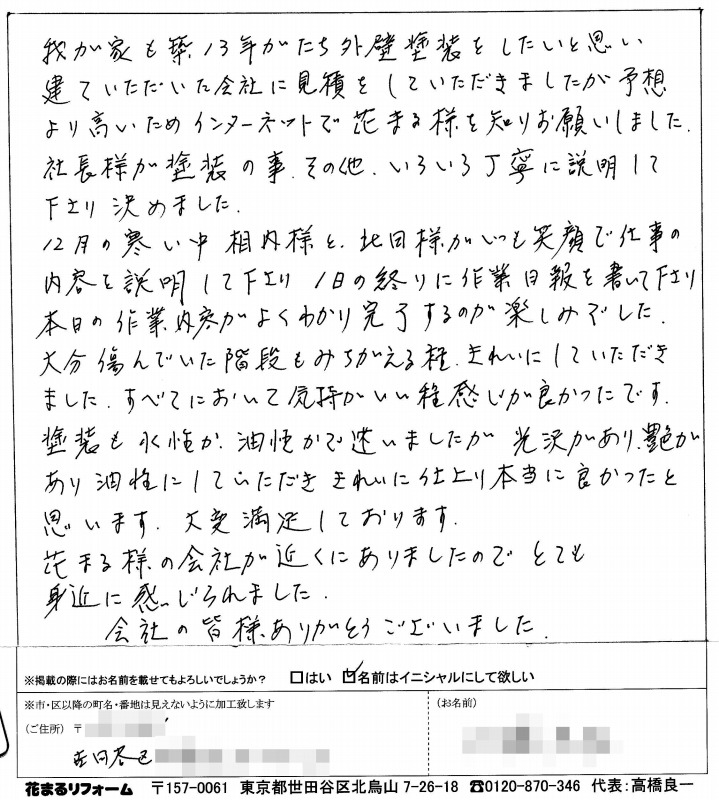 我が家も築13年がたち外壁塗装をしたいと思い
建ていただいた会社に見積をしていただきましたが予想
より高いためインターネットで花まる様を知りお願いしました.
社長様が塗装の事.その他.いろいろ丁寧に説明して
下さり決めました.
12月の寒い中 相内様と.北田様がいつも笑顔で仕事の
内容を説明して下さり 1日の終りに作業日報を書いて下さり
本日の作業内容がよくわかり完了するのが楽しみでした.
大分傷んでいた階段もみちがえる程.きれいにしていただき
ました.すべてにおいて気持がいい程感じが良かったです.
塗装も水性か.油性かで迷いましたが 光沢があり.艶が
あり油性にしていただき きれいに仕上り本当に良かったと
思います.大変満足しております.
花まる様の会社が近くにありましたので とても
身近に感じられました.
会社の皆様ありがとうございました.
※掲載の際にはお名前を載せてもよろしいでしょうか? □はい ☑名前はイニシャルにして欲しい
※市・区以降の町名・番地は見えないように加工致します
(お名前)
(ご住所) 〒
世田谷区
花まるリフォーム 〒157-0061 東京都世田谷区北烏山 7-26-18 ☎0120-870-346 代表:高橋良一